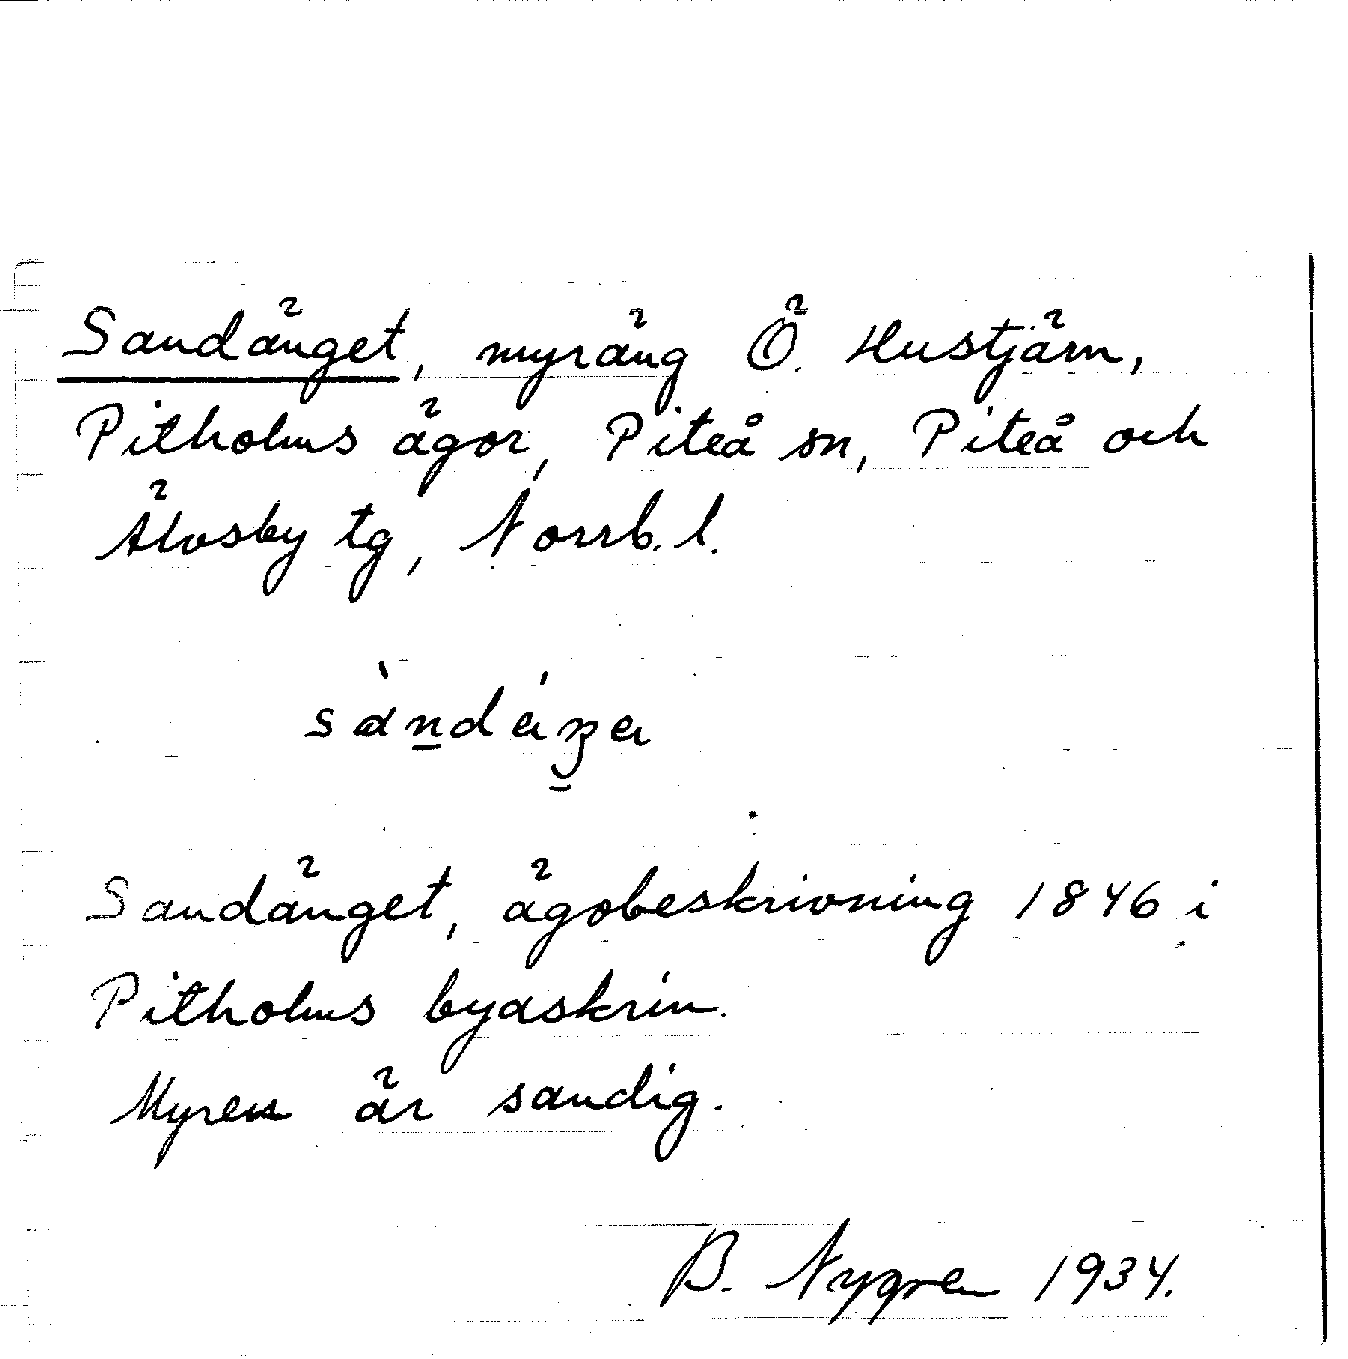 Sandänget, myräng Ö. Hustjärn,
Pitholms ägor, Piteå sn, Piteå och
Älvsby tg, Norrb. l.
Sandänget, ägobeskrivning 1846 i
Pitholms byaskrin.
Myren är sandig.
B. Nygren 1934.